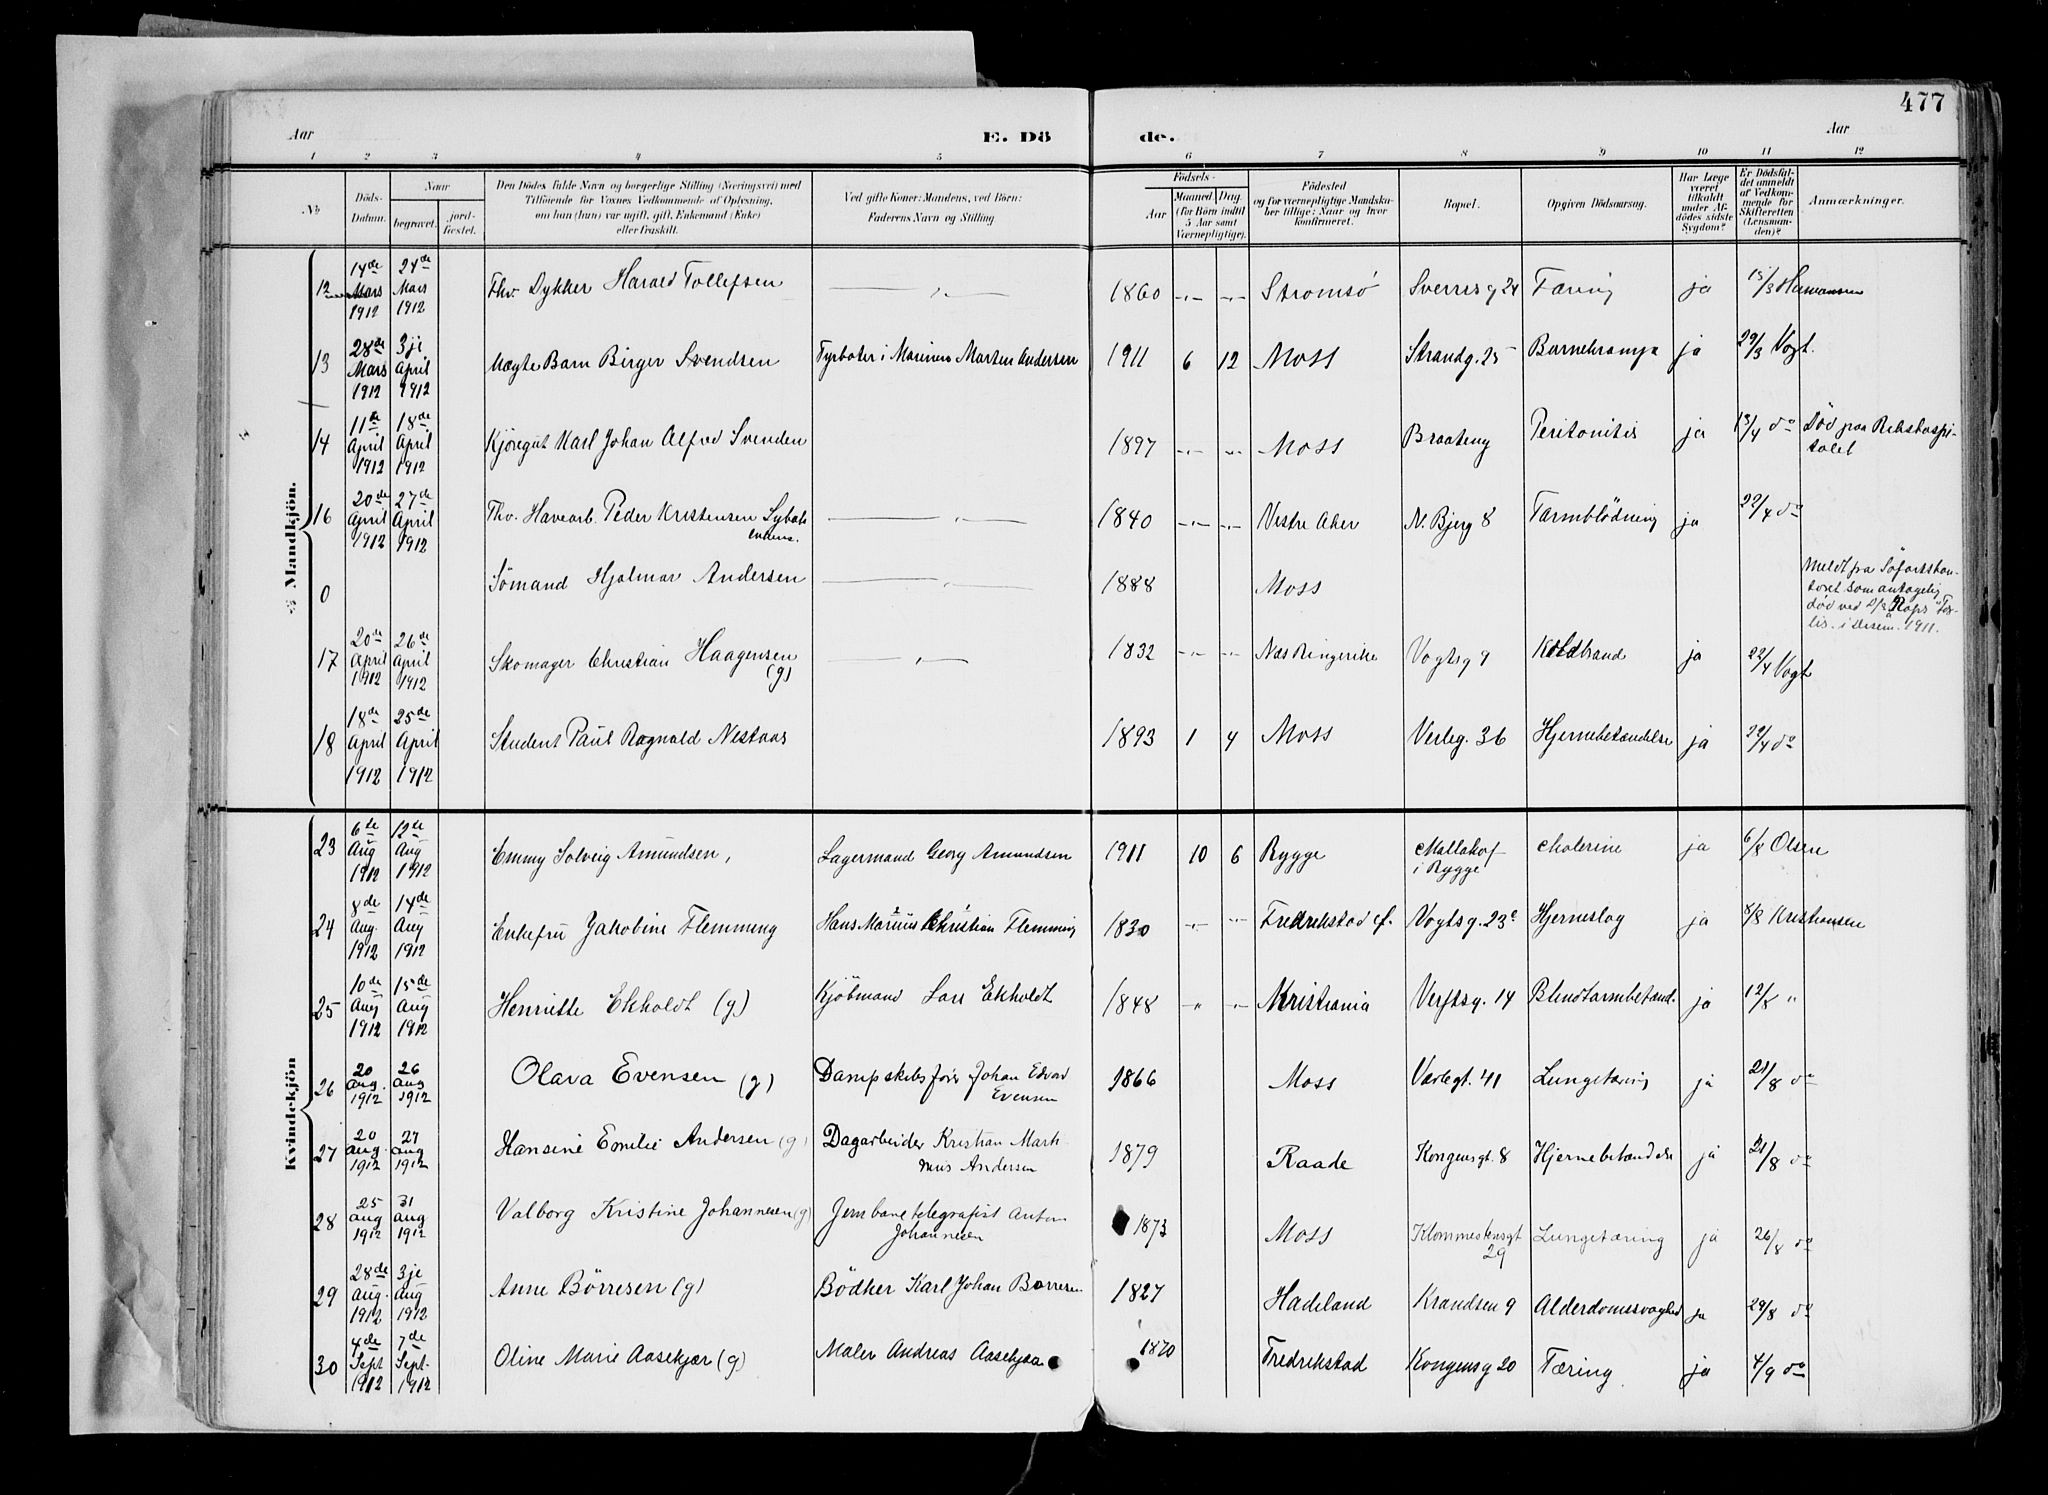 477
Aar
E. Dö
de.
Aar
1 2 3 4 5 6 7 8 9 10 11 12
No
Döds-
Datum.
Naar
begravet.
jord-
fæstet.
Den Dödes fulde Navn og borgerlige Stilling (Næringsvei) med
Tilföiende for Voxnes Vedkommende af Oplysning,
om han (hun) var ugift, gift, Enkemand (Enke)
eller fraskilt.
Ved gifte Koner: Mandens, ved Börn:
Faderens Navn og Stilling.
Födsels-
Aar
Maaned
Dag.
(for Börn indtil
5 Aar samt
Værnepligtige).
Födested
og for værnepligtige Mandskaber tillige: Naar og hvor
konfirmeret.
Bopæl.
Opgiven Dödsaarsag.
Har Læge
været
tilkaldt
under Af-
dödes sidste
Sygdom?
Er Dödsfal-
det anmeldt
af Vedkom-
mende for
Skifteretten
(Lensman-
den)?
Anmærkninger.
Mandkjön.
12 14de Mars 1912 24de Mars 1912 Fhv. Dykker Harald Tollefsen 1860 Strömsö Sverresg 24 Tæring ja 15/3 Hermansen
13 28de Mars 1912 3je April 1912 Uægte Barn Birger Svendsen Fyrböter i Marinen Morten Andersen 1911 6 12 Moss Strandg. 25 Barnekrampe ja 29/3 Vogt.
14 11te April 1912 18de April 1912 Kjöregut Karl Johan Alfred Svenden 1897 Moss Braateng Peritonitis ja 13/4 do Död paa Rikshospi-
talet
16 20de April 1912 27de April 1912 Fhv. Havearb. Peder Kristensen 1840 Vestre Aker N. Bjerg 8 Tarmblödning ja 22/4 do
0 Sömand Hjalmar Andersen 1888 Moss Meldt fra Söfartskon-
toret som antagelig
död ved D/S "Rops" For-
lis i Desem. 1911.
17 20de April 1912 26de April 1912 Skomager Christian Haagensen (g) 1832 Næs Ringerike Vogtsg 9 Koldbrand ja 22/4 Vogt
18 18de April 1912 25de April 1912 Student Paul Ragnald Nestaas 1893 1 4 Moss Verleg. 36 Hjernebetændelse ja 22/4 do
Kvindekjön
23 6de Aug 1912 12de Aug 1912 Emmy Solveig Amundsen, Lagermand Georg Amundsen 1911 10 6 Rygge Mallakof
i Rygge Cholerine ja 6/8 Olsen
24 8de Aug. 1912 14de Aug 1912 Enkefru Jakobine Flemming Hans Marius Christian Flemming 1830 Fredrikstad Vogtsg. 23c Hjerneslag ja 8/8 Kristiansen
25 10de Aug 1912 15de Aug 1912 Henriette Ekholdt (g) Kjöbmand Lars Ekholdt 1848 Kristiania Verftsg. 14 Blindtarmbetænd. ja 12/8 "
26 20 Aug. 1912 26 Aug 1912 Olava Evensen (g) Dampskibsförer Johan Edvard
Evensen 1866 Moss Værlegt. 41 Lungetæring ja 21/8 do
27 20 Aug. 1912 27 Aug 1912 Hansine Emilie Andersen (g) Dagarbeider Kristian Marti-
nius Andersen 1879 Raade Kongensgt. 8 Hjernebetændelse ja 21/8 do
28 25 Aug 1912 31 Aug 1912 Valborg Kristine Johannesen (g) Jernbanetelegrafist Anton
Johannesen 1873 Moss Klommestensgt
29 Lungetæring ja 26/8 do
29 28de Aug. 1912 3je Aug 1912 Anne Börresen (g) Bödker Karl Johan Börresen 1827 Hadeland Krandsen 9 Alderdomssvaghed ja 29/8 do
30 4de Sept 1912 7de Sept. 1912 Oline Marie Aasekjær (g) Maler Andreas Aasekjær 1870 Fredrikstad Kongensg 20 Tæring ja 4/9 do